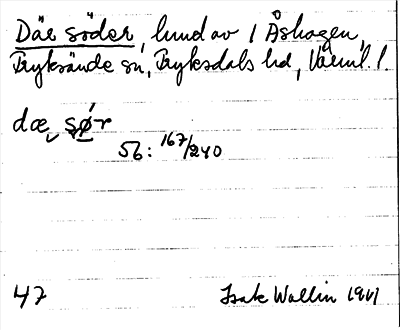 Där söder, lund av / Åshagen,
Fryksände sn, Fryksdals hd, Värml. l.
dæ, sør
56: 167/240
47 Isak Wallin 1941